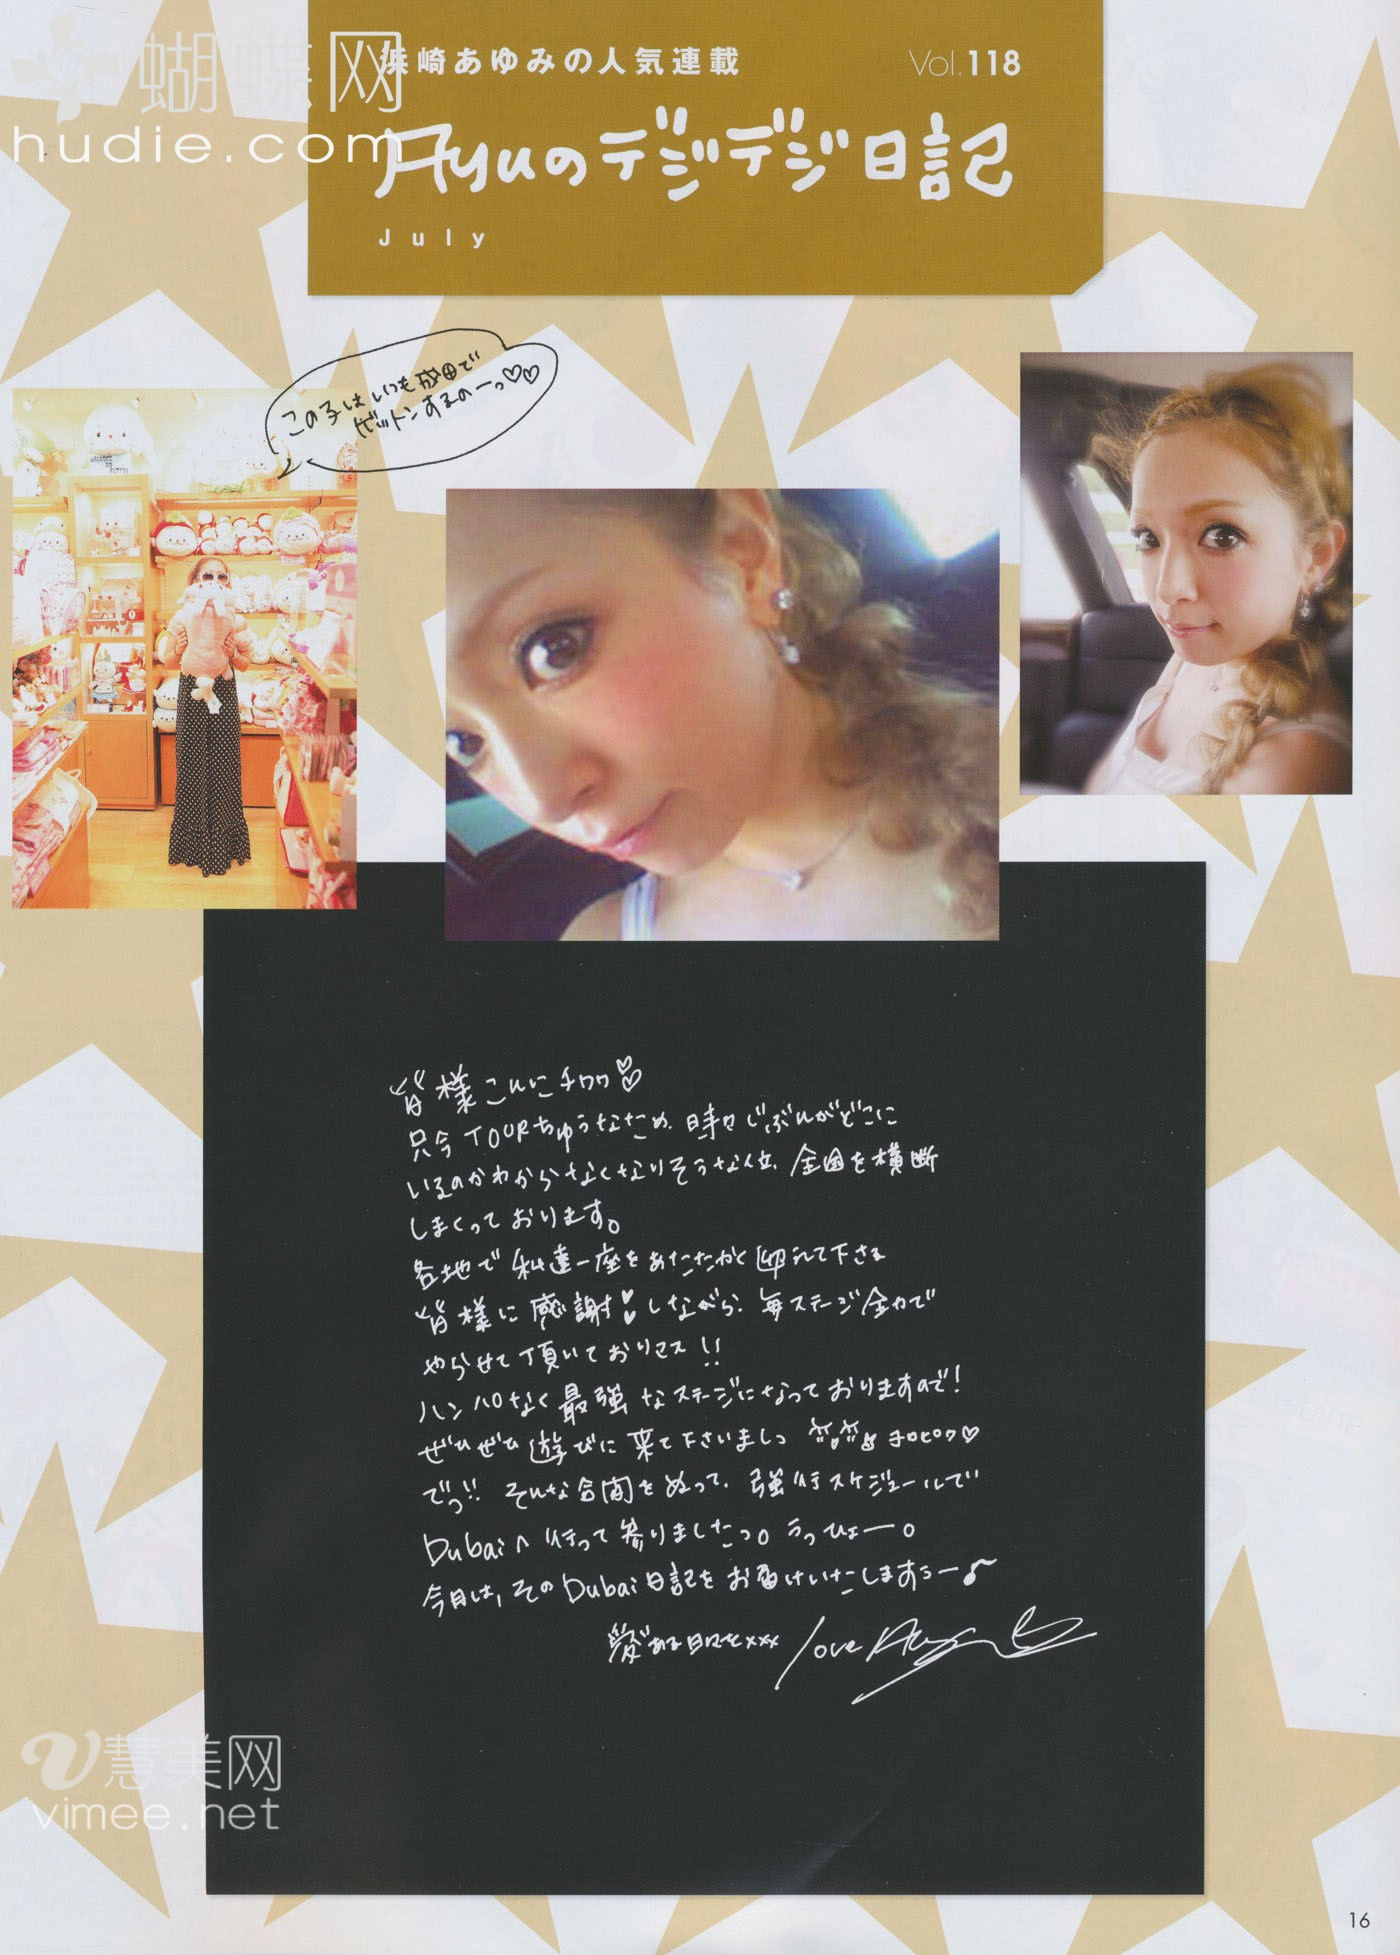 蝴蝶网
hudie.com
浜崎あゆみの人気連載
Vol.118
Ayuのデジデジ日記
July
この子はいつも成田で
ゲットンするのーっ♡♡
皆様こんにチワワ
只今TOURちゅうなため、時々じぶんがどこに
いるのかわからなくなりそうな位、全国を横断
しまくっております。
各地で私達一座をあたたかく迎えて下さる
皆様に感謝しながら、毎ステージ全力で
やらせて頂いておりマス!!
ハンパなく最強なステージになっておりますので!
ぜひぜひ遊びに来て下さいましっ
でっ!! そんな合間をぬって、強行スケジュールで
Dubaiへ行って参りましたっ。うっひょー。
今月は、そのDubai日記をお届けいたしますぅー♪
愛ある日々を××× love Ayu
v慧美网
vimee.net
16